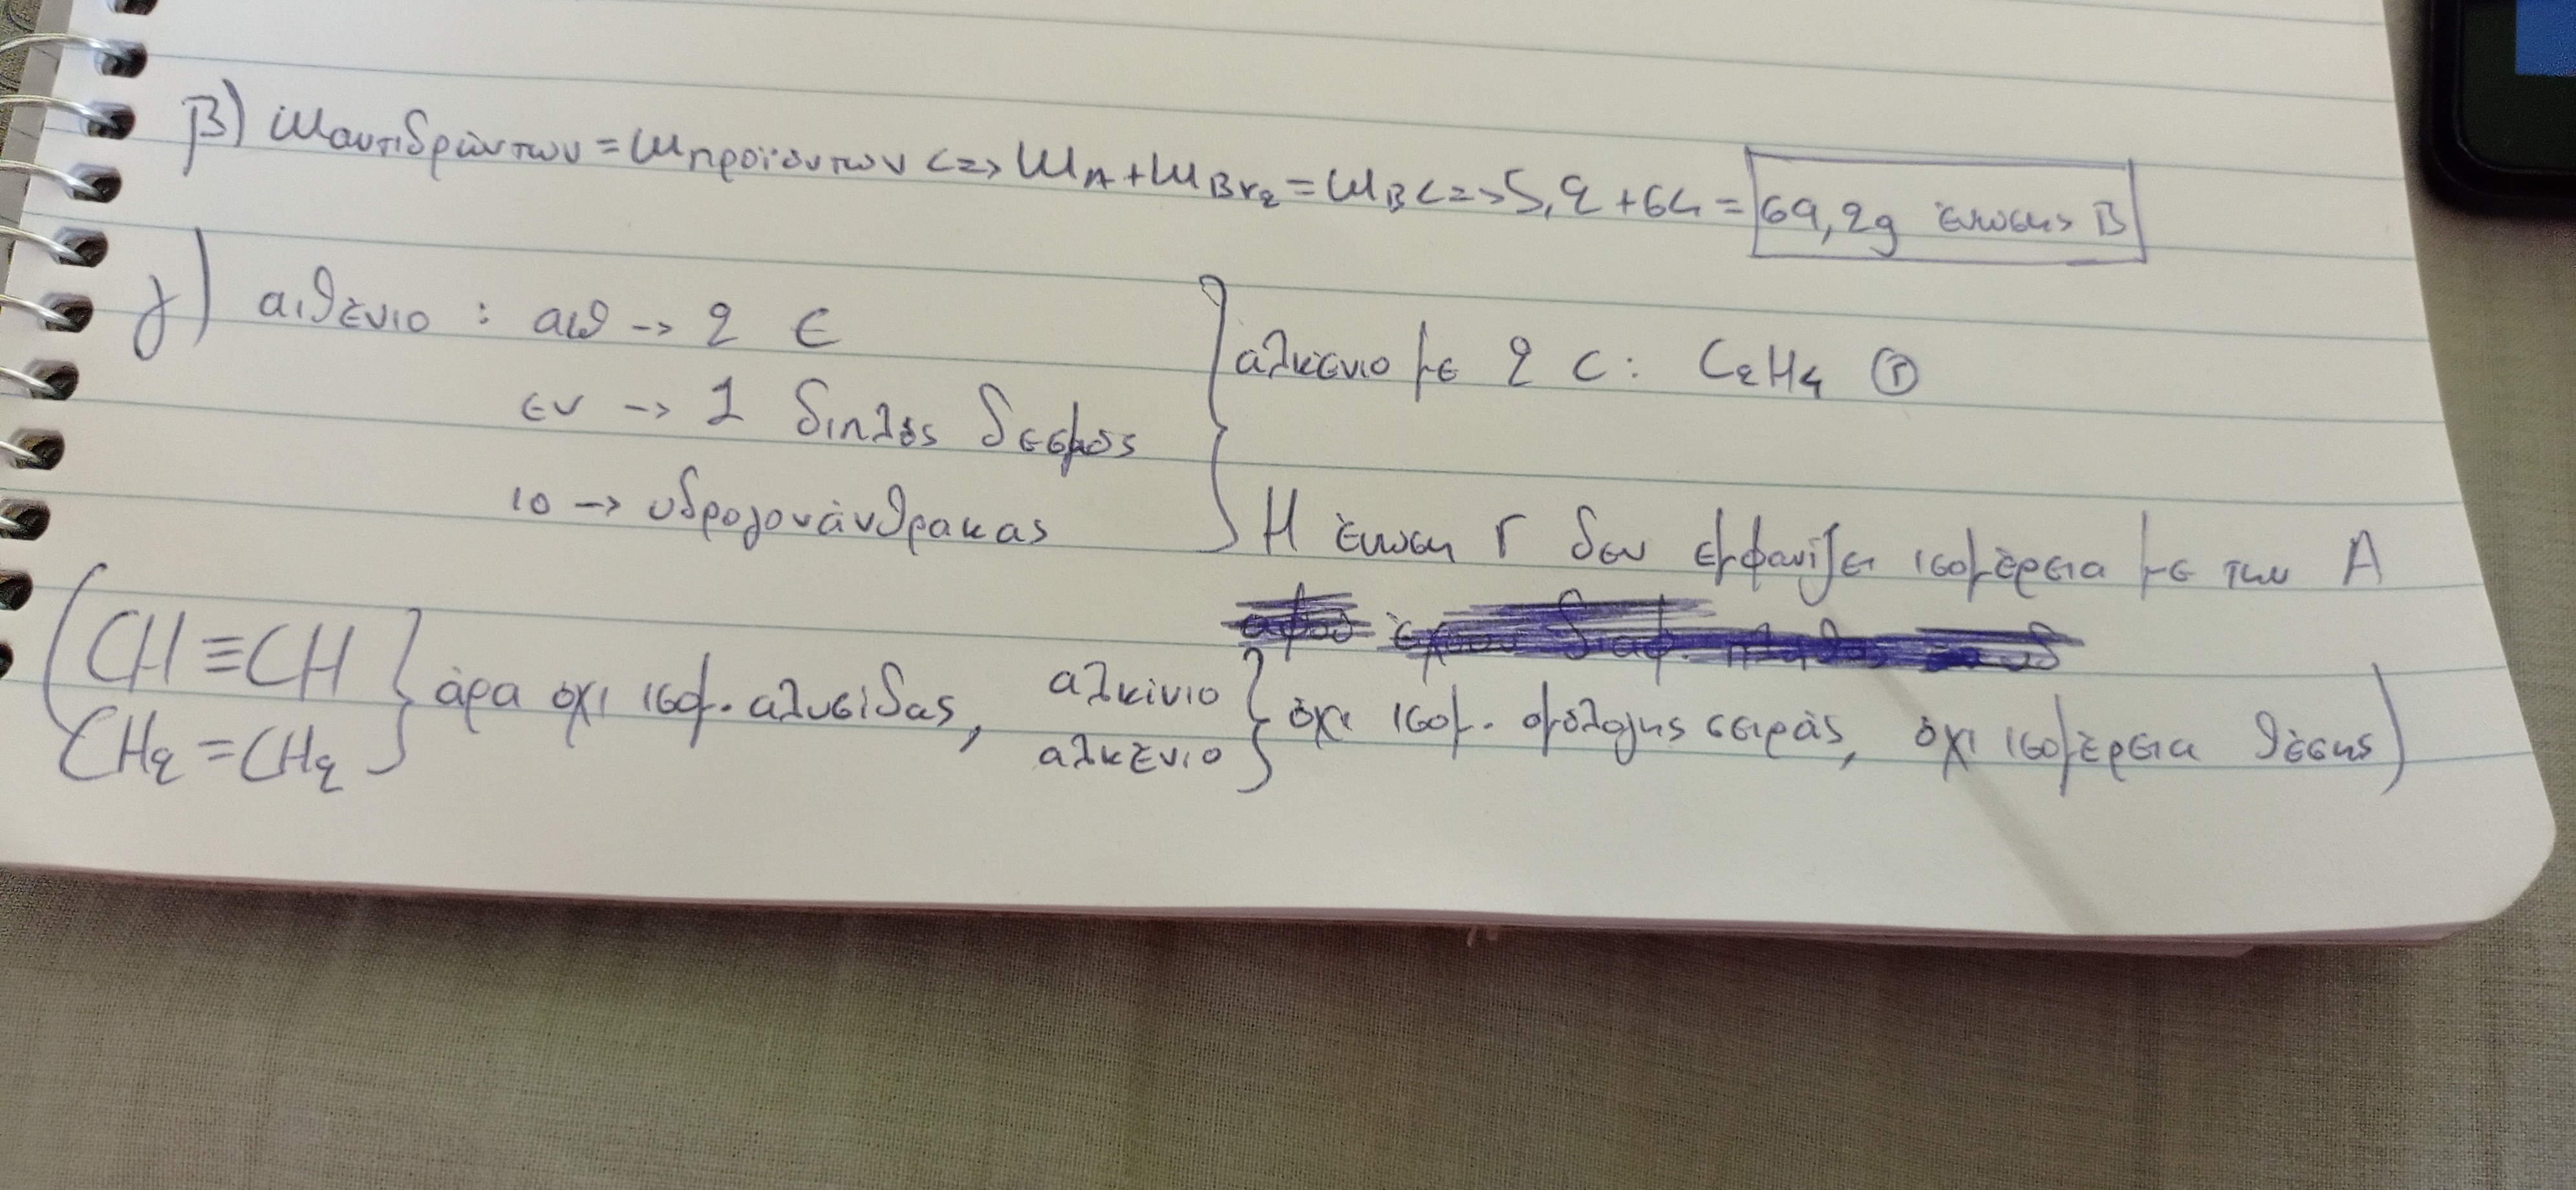 β) mαντιδρώντων = mπροϊόντων <=> mA + mBr2 = mB <=> 5,2 + 64 = 69,2g ένωσης Β
γ) αιθένιο : αιθ -> 2 C
εν -> 1 διπλός δεσμός
ιο -> υδρογονάνθρακας
αλκένιο με 2 C: C2H4 Γ
Η ένωση Γ δεν εμφανίζει ισομέρεια με την Α
(CH≡CH
CH2=CH2 } άρα όχι ισομ. αλυσίδας, αλκίνιο
αλκένιο } όχι ισομ. ομόλογης σειράς, όχι ισομέρεια θέσης)